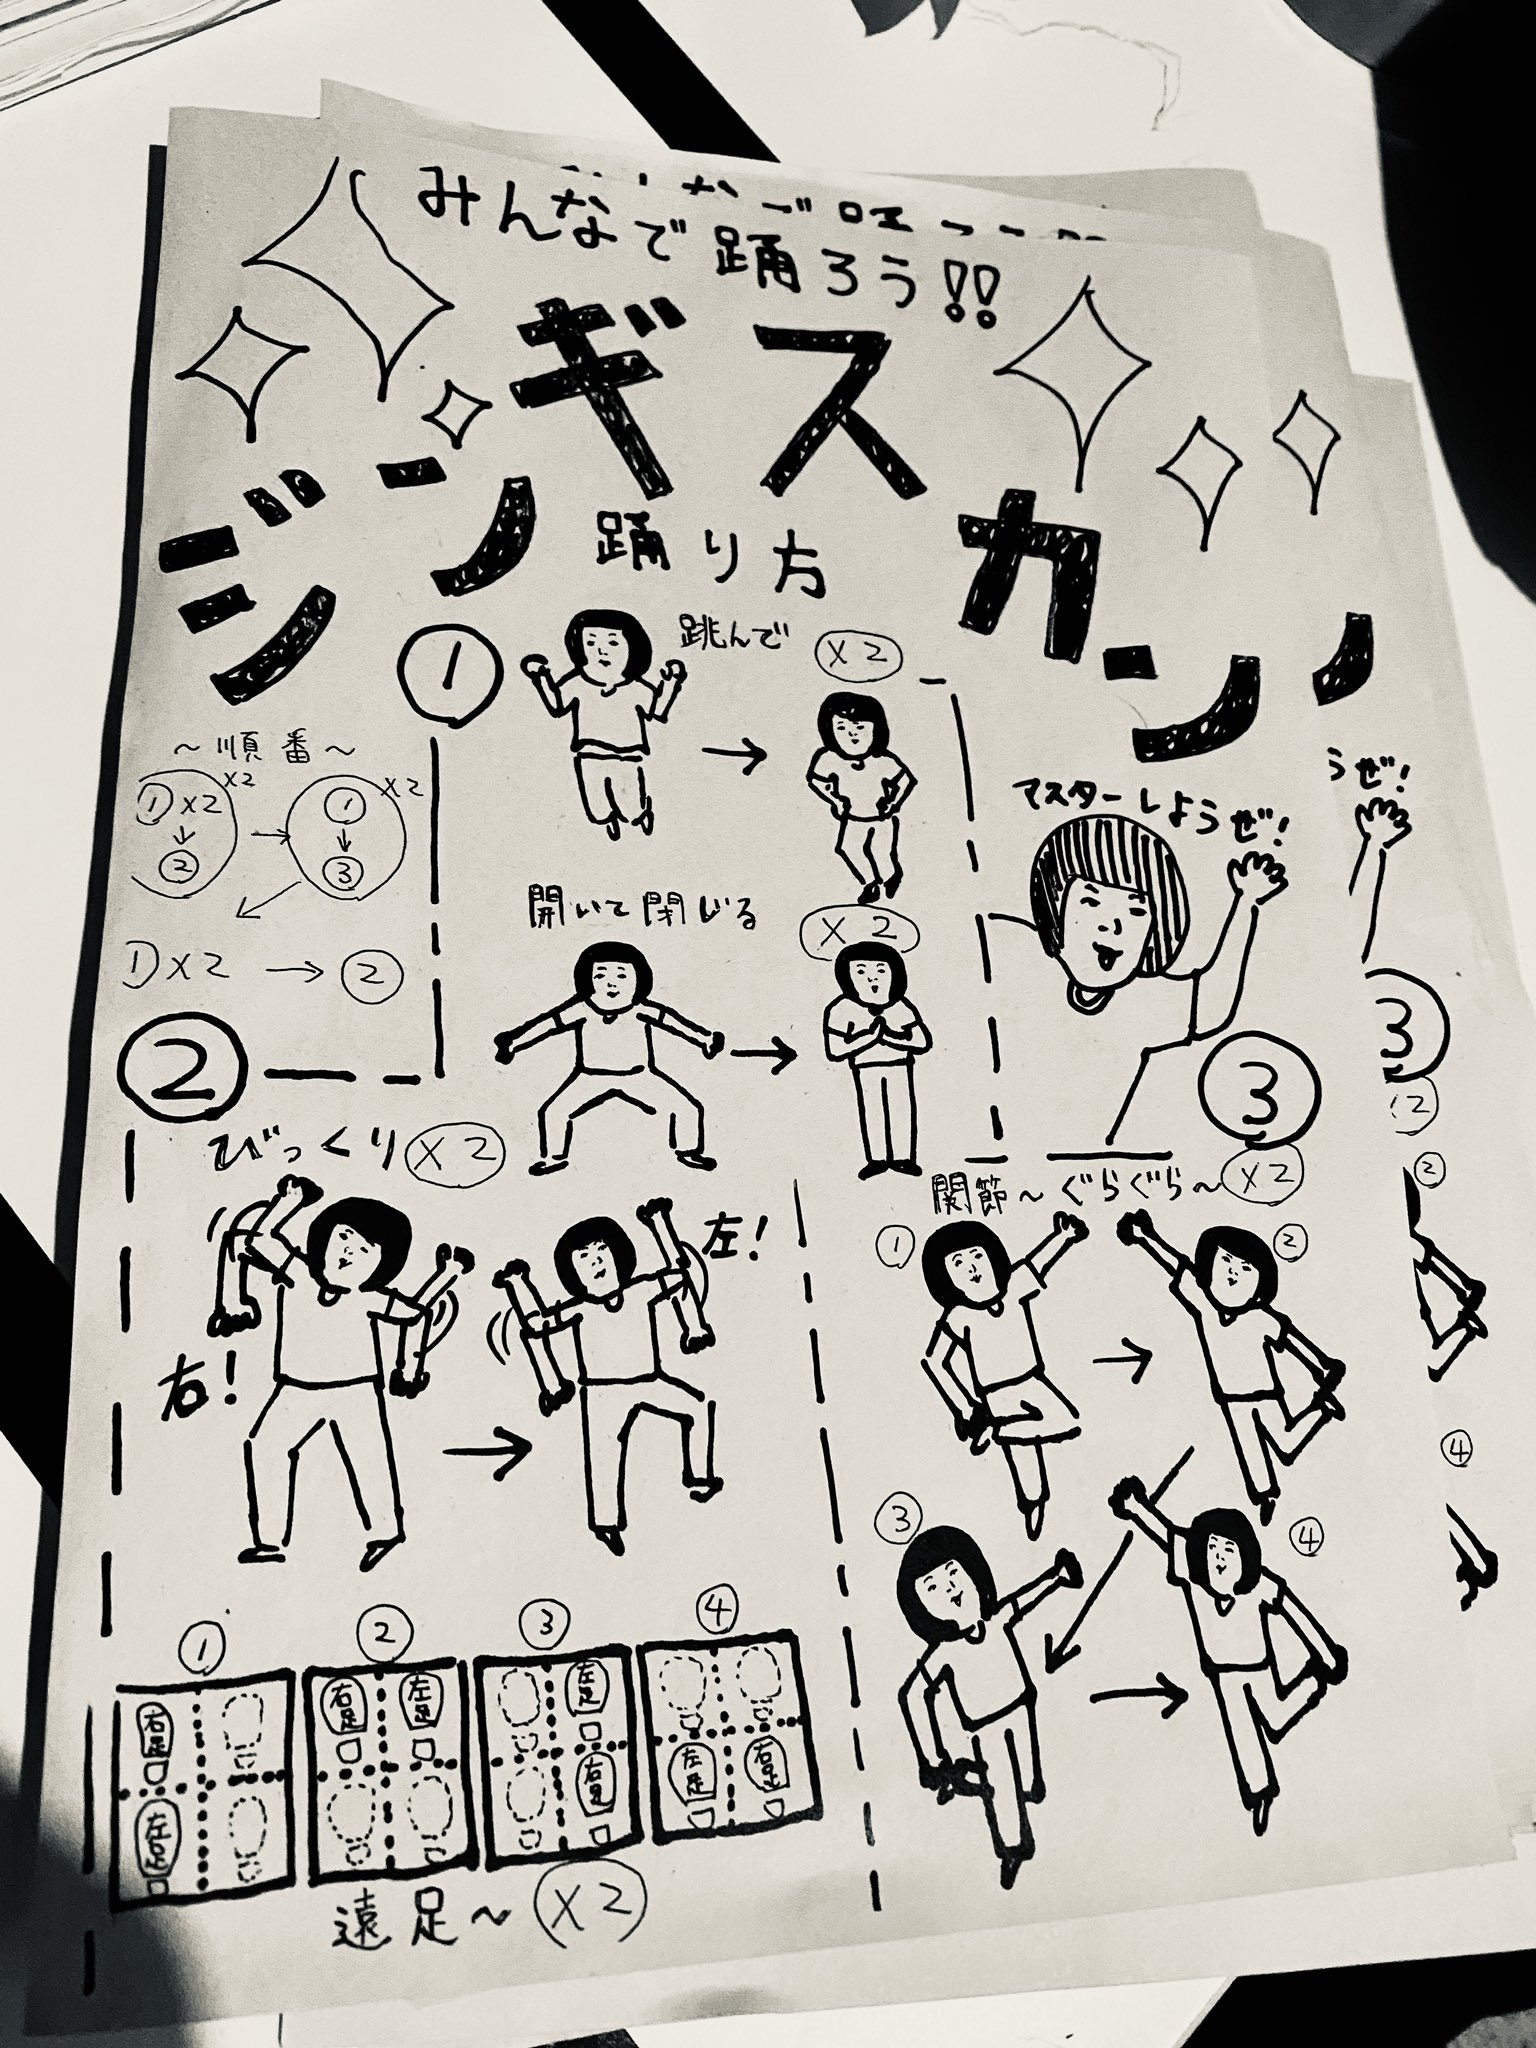 みんなで踊ろう!!
ジンギスカン
踊り方
~順番~
①×2 ×2
↓
②
→
① ×2
↓
③
①×2 → ②
①
跳んで ×2
開いて閉じる ×2
マスターしようぜ!
②
びっくり ×2
右!
左!
① ② ③ ④
右足
左足
右足 左足
左足
右足
左足 右足
遠足~ ×2
③
関節~ぐらぐら~ ×2
① ②
③ ④
うぜ!
3
2
②
④